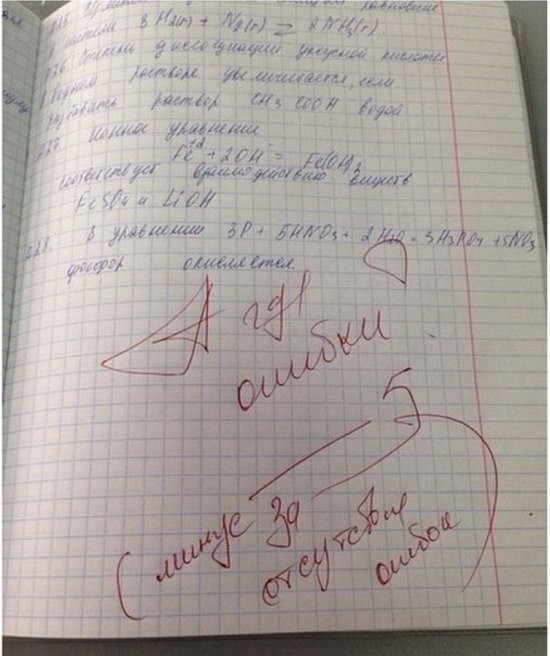 равновесие
3 H2(г) + N2(г) ⇄ 2 NH3(г).
Степень диссоциации уксусной кислоты
в водном растворе увеличивается, если
разбавить раствор CH3COOH водой
A27 Ионное уравнение
Fe+2 + 2OH- = Fe(OH)2
соответствует взаимодействию веществ
FeSO4 и LiOH
A28. В уравнении 3P + 5HNO3 + 2 H2O = 3H3PO4 + 5NO,
фосфор окисляется
А где
ошибки
5
(минус за
отсутствие
ошибок)